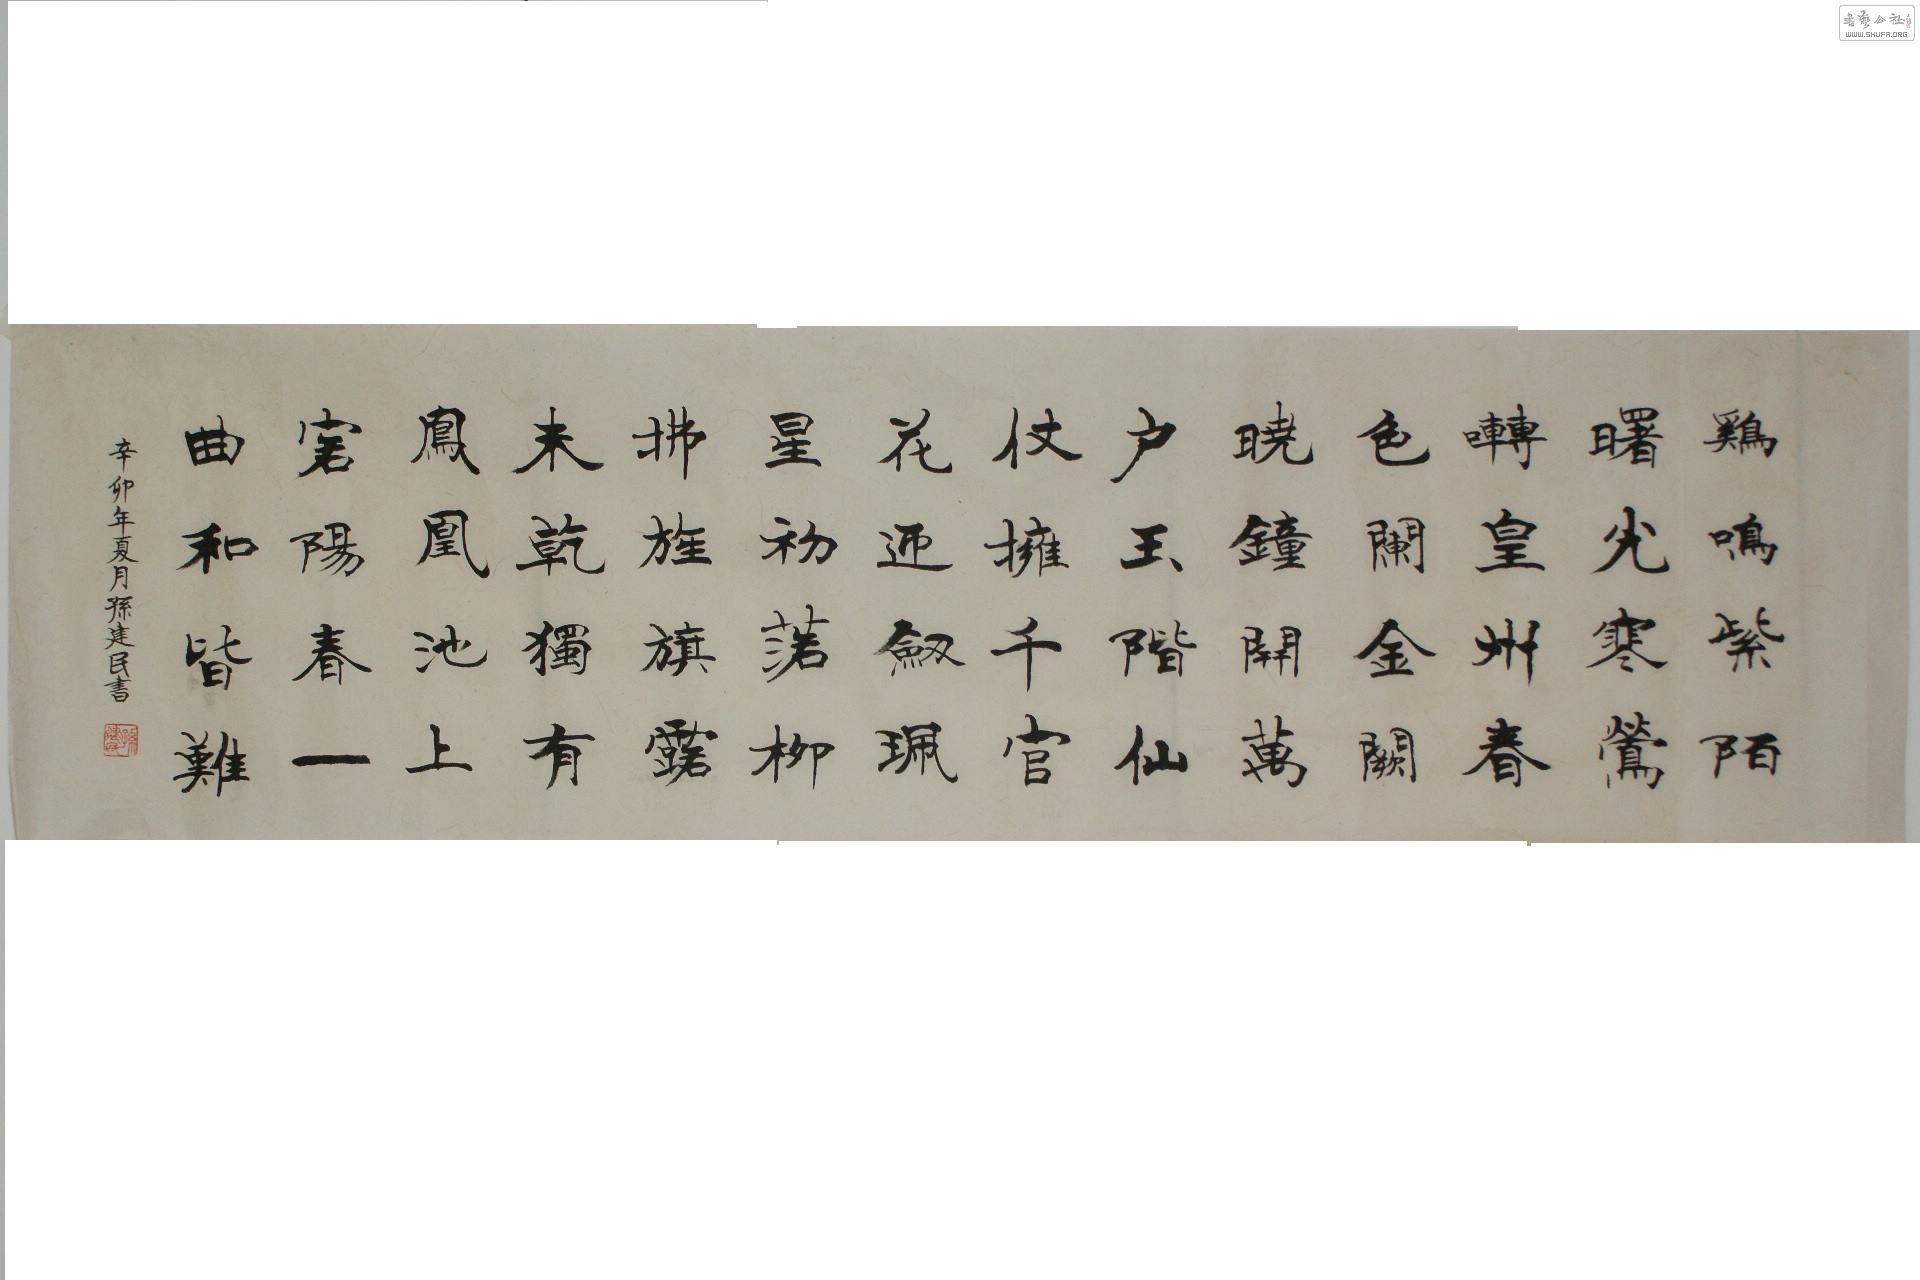 鷄鳴紫陌
曙光寒鶯
囀皇州春
色闌金闕
曉鐘開萬
户玉階仙
仗擁千官
花迎劔珮
星初落柳
拂旌旗露
未乾獨有
鳳凰池上
客陽春一
曲和皆難
辛卯年夏月孫建民書
書藝公社
WWW.SHUFA.ORG